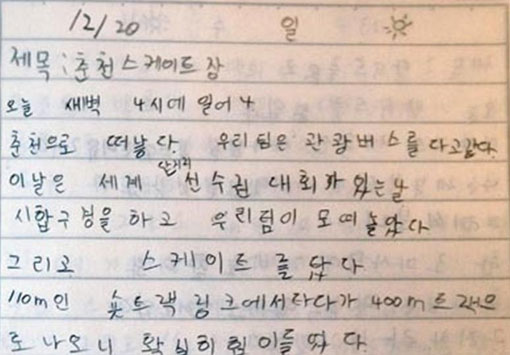 12/20 일
제목: 춘천스케이트장
오늘 새벽 4시에 일어나
춘천으로 떠낳다. 우리팀은 관광버스를 타고갔다.
이날은 세계 단거리 선수권 대회가 있는날
시합구경을 하고 우리팀이 모여놀았다
그리고 스케이트를 탔다
110m인 숏트랙 링크에서타다가 400m트랙으
로 나오니 확실히 힘이들었다